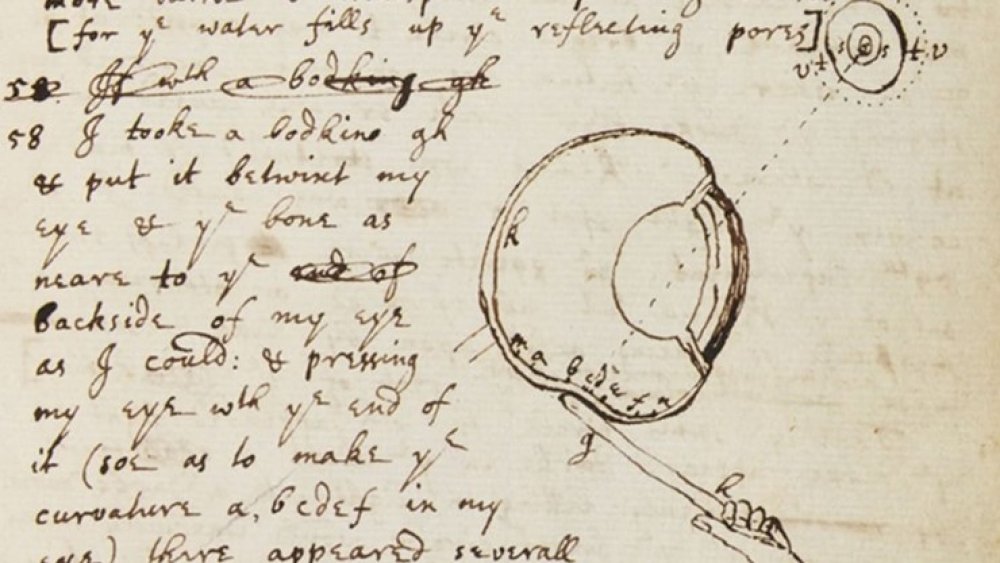 [for yᵉ water fills up yᵉ reflecting pores]
58 If wth a bodking gh
58 I tooke a bodkine gh
& put it betwixt my
eye & yᵉ bone as
neare to yᵉ end of
backside of my eye
as I could: & pressing
my eye wth yᵉ end of
it (soe as to make yᵉ
curvature a, bcdef in my
eye) there appeared severall
s s
v t t v
k
m a b c d e f n
g
h